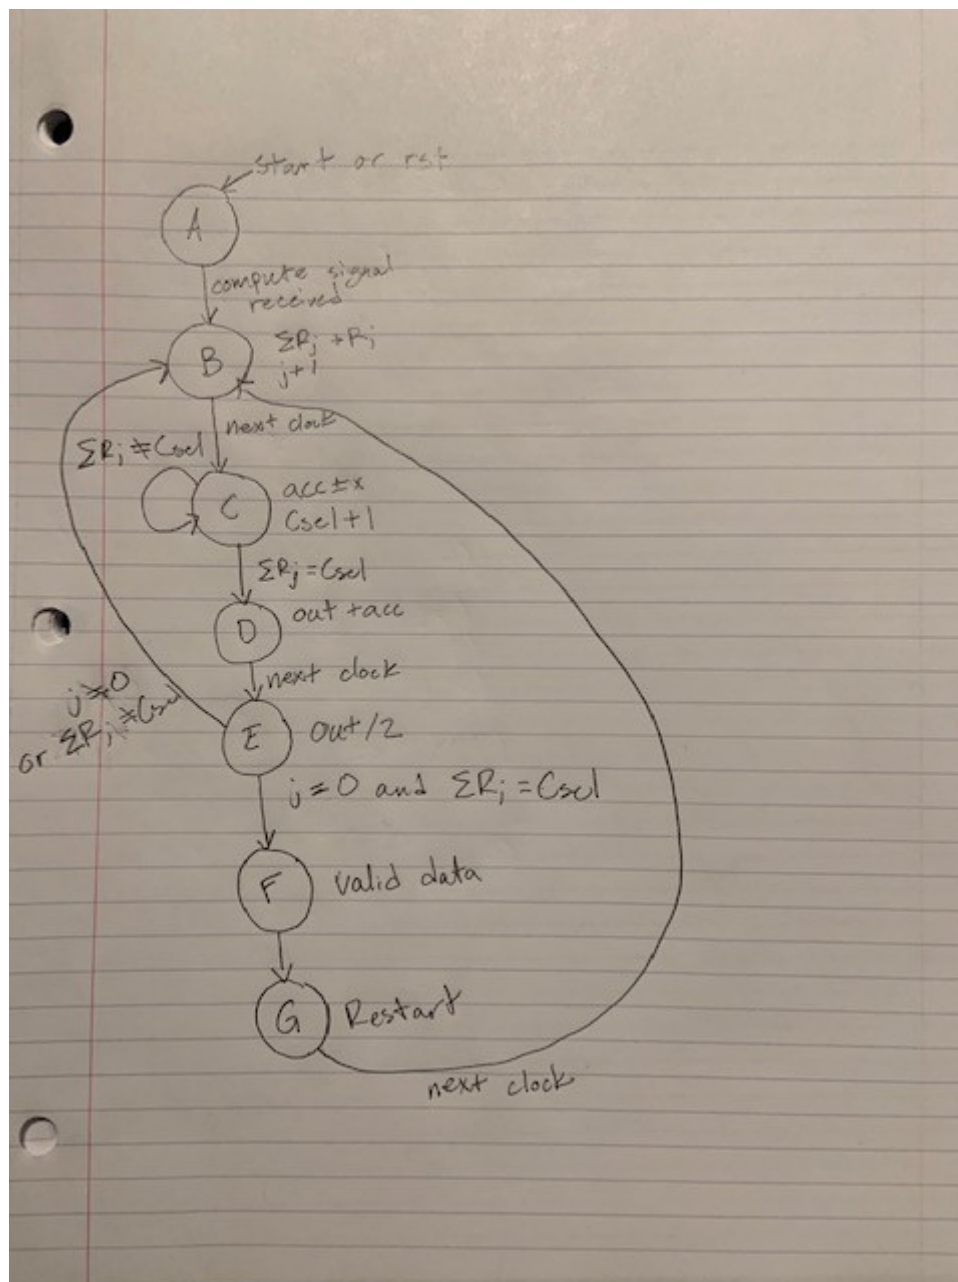 start or rst
A
compute signal
received
B
ΣRj + Rj
j+1
next clock
ΣRj ≠ Csel
C
acc ± x
Csel+1
ΣRj = Csel
D
out + acc
next clock
j ≠ 0
or ΣRj ≠ Csel
E
out/2
j = 0 and ΣRj = Csel
F
valid data
G
Restart
next clock